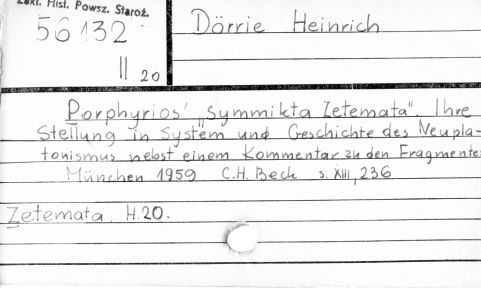 Zakł. Hist. Powsz. Staroż.
56132
II 20
Dörrie Heinrich
Porphyrios' „Symmikta Zetemata". Ihre
Stellung in System und Geschichte des Neupla-
tonismus nebst einem Kommentar zu den Fragmente
München 1959 C.H. Beck s. XIII, 236
Zetemata H.20.